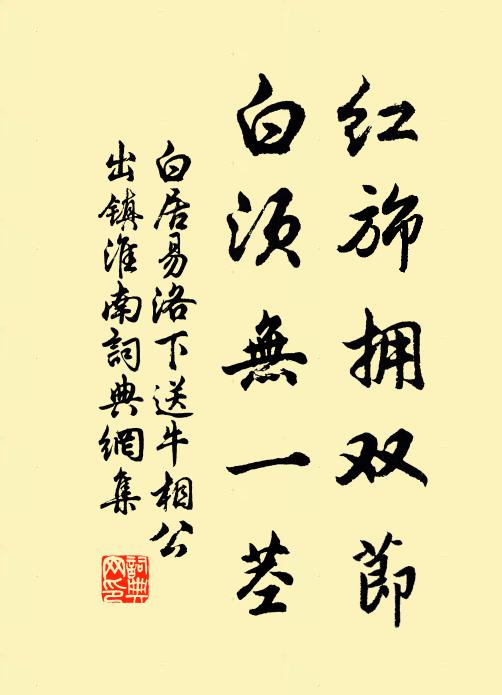 红旆拥双節
白须無一茎
白居易洛下送牛相公
出鎮淮南詞典網集
詞典网印